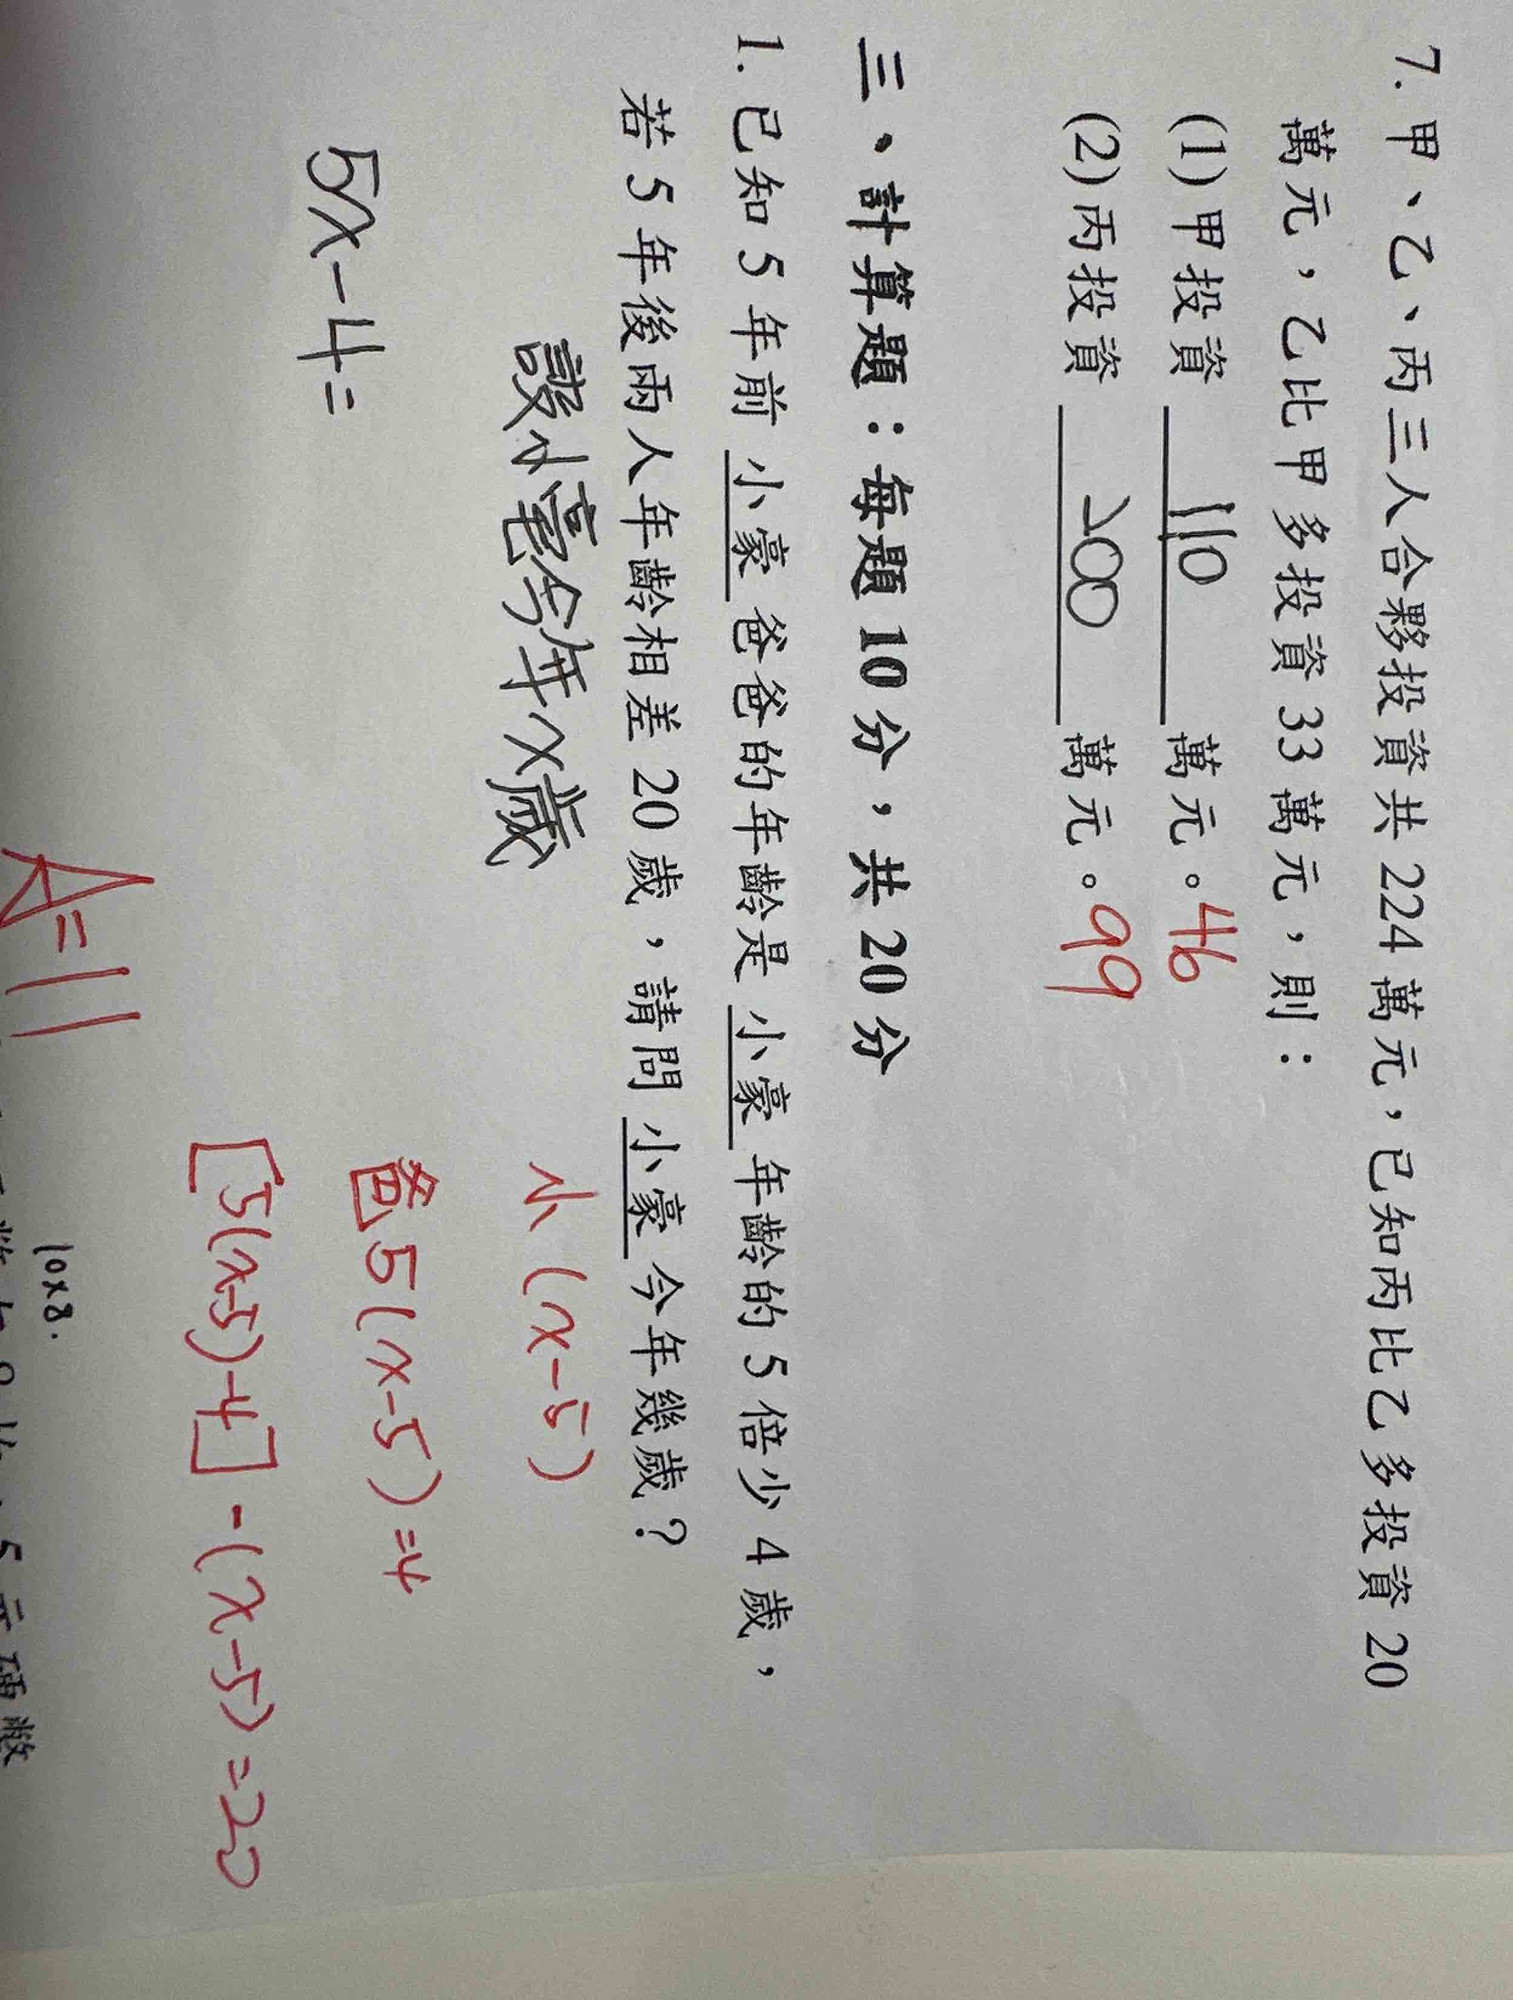 7. 甲、乙、丙三人合夥投資共 224 萬元，已知丙比乙多投資 20
萬元，乙比甲多投資 33 萬元，則：
(1) 甲投資 110 萬元。46
(2) 丙投資 200 萬元。99
三、計算題：每題 10 分，共 20 分
1. 已知 5 年前小豪爸爸的年齡是小豪年齡的 5 倍少 4 歲，
若 5 年後兩人年齡相差 20 歲，請問小豪今年幾歲？
設小豪今年x歲
小(x-5)
5x-4=
爸5(x-5)=4
[5(x-5)-4]-(x-5)=20
A=11
10×8.